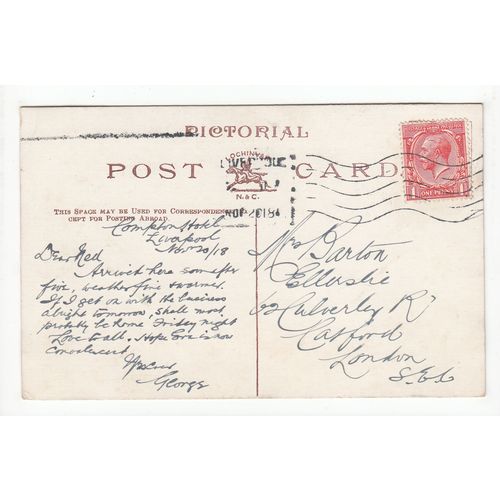 PICTORIAL
POST CARD
LOCHINVAR
N. & C.
LIVERPOOL
NOV 20 18
ONE PENNY
THIS SPACE MAY BE USED FOR CORRESPONDENCE
CEPT FOR POSTING ABROAD
Compton Hotel
Liverpool
Nov 20/18
Dear Ned
Arrived here soon after
five, weather fine & warmer.
If I get on with the business
alright tomorrow, shall most
probably be home Friday night
Love to all. Hope is now
convalescent.
George
Mrs Barton
Ellerslie
62 Culverley Rd
Catford
London
S.E.6